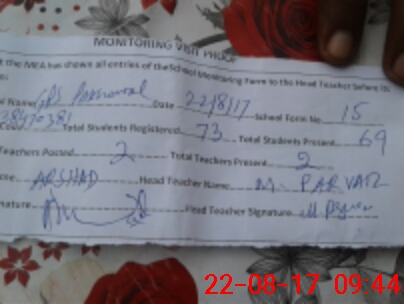 MONITORING VISIT PROOF
t the MEA has shown all entries of the School Monitoring Form to the Head Teacher before its
l Name GPS Date 22/8/17 School Form No 15
Total Students Registered 73 Total Students Present 69
Teachers Posted 2 Total Teachers Present 2
ARSHAD Head Teacher Name M. PARVAIZ
nature Head Teacher Signature
22-08-17 09:44